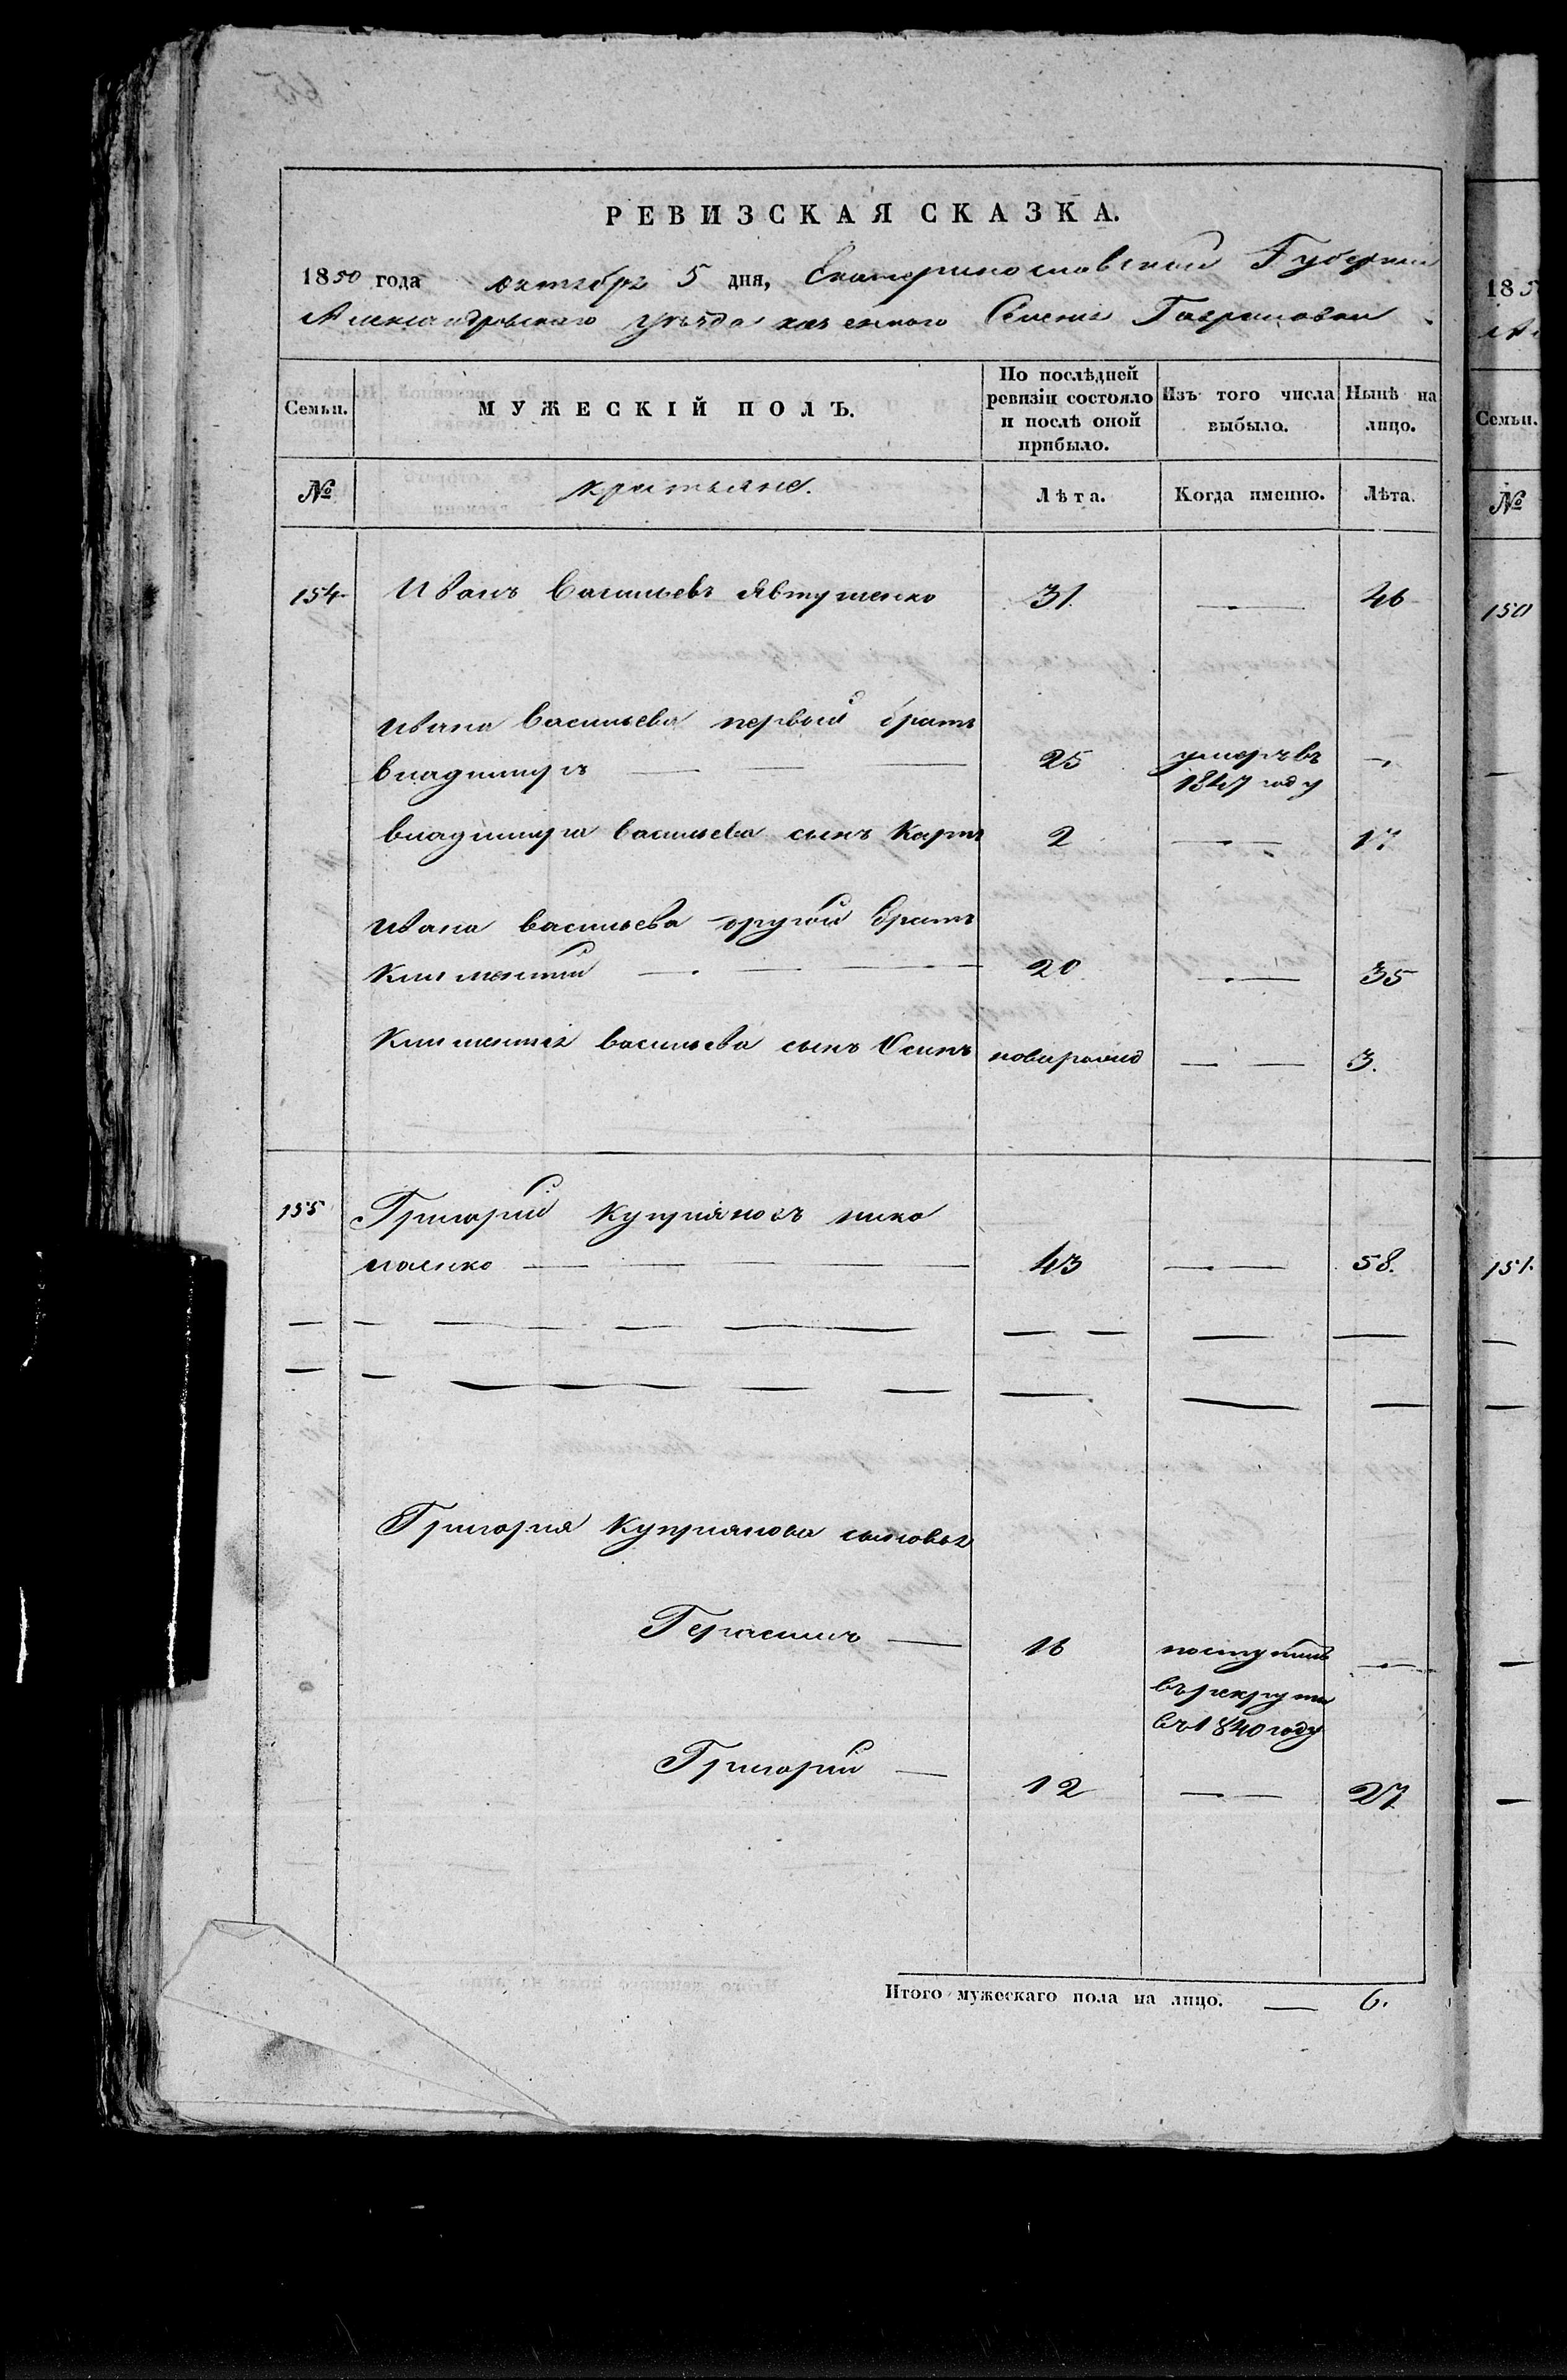 65
РЕВИЗСКАЯ СКАЗКА.
1850 года октября 5 дня, Екатеринославской Губернии
Александровскаго уъзда казенного Селения Гавриловки
Семьи. МУЖЕСКІЙ ПОЛЪ. По послѣдней ревизіи состояло и послѣ оной прибыло. Изъ того числа выбыло. Нынѣ на лицо.
№ крестьяне. Лѣта. Когда именно. Лѣта.
154 Иванъ Васильевъ Явтушенко 31. — 46
Ивана Васильева первый братъ
Владимиръ — — — 25 умеръ въ 1847 году —
Владимира Васильева сынъ Карпъ 2 — 17
Ивана Васильева другой братъ
Климентий — — — 20 — 35
Климентия Васильева сынъ Осипъ новорожд — — 3.
155 Григорий Куприяновъ нико
лаенко — — — 43 — 58.
Григория Куприянова сыновья
Герасимъ — 16 поступилъ —
въ рекруты
въ 1840 году
Григорий — 12 — 27
Итого мужескаго пола на лицо. — 6.
185
Семьи.
№
150
151.